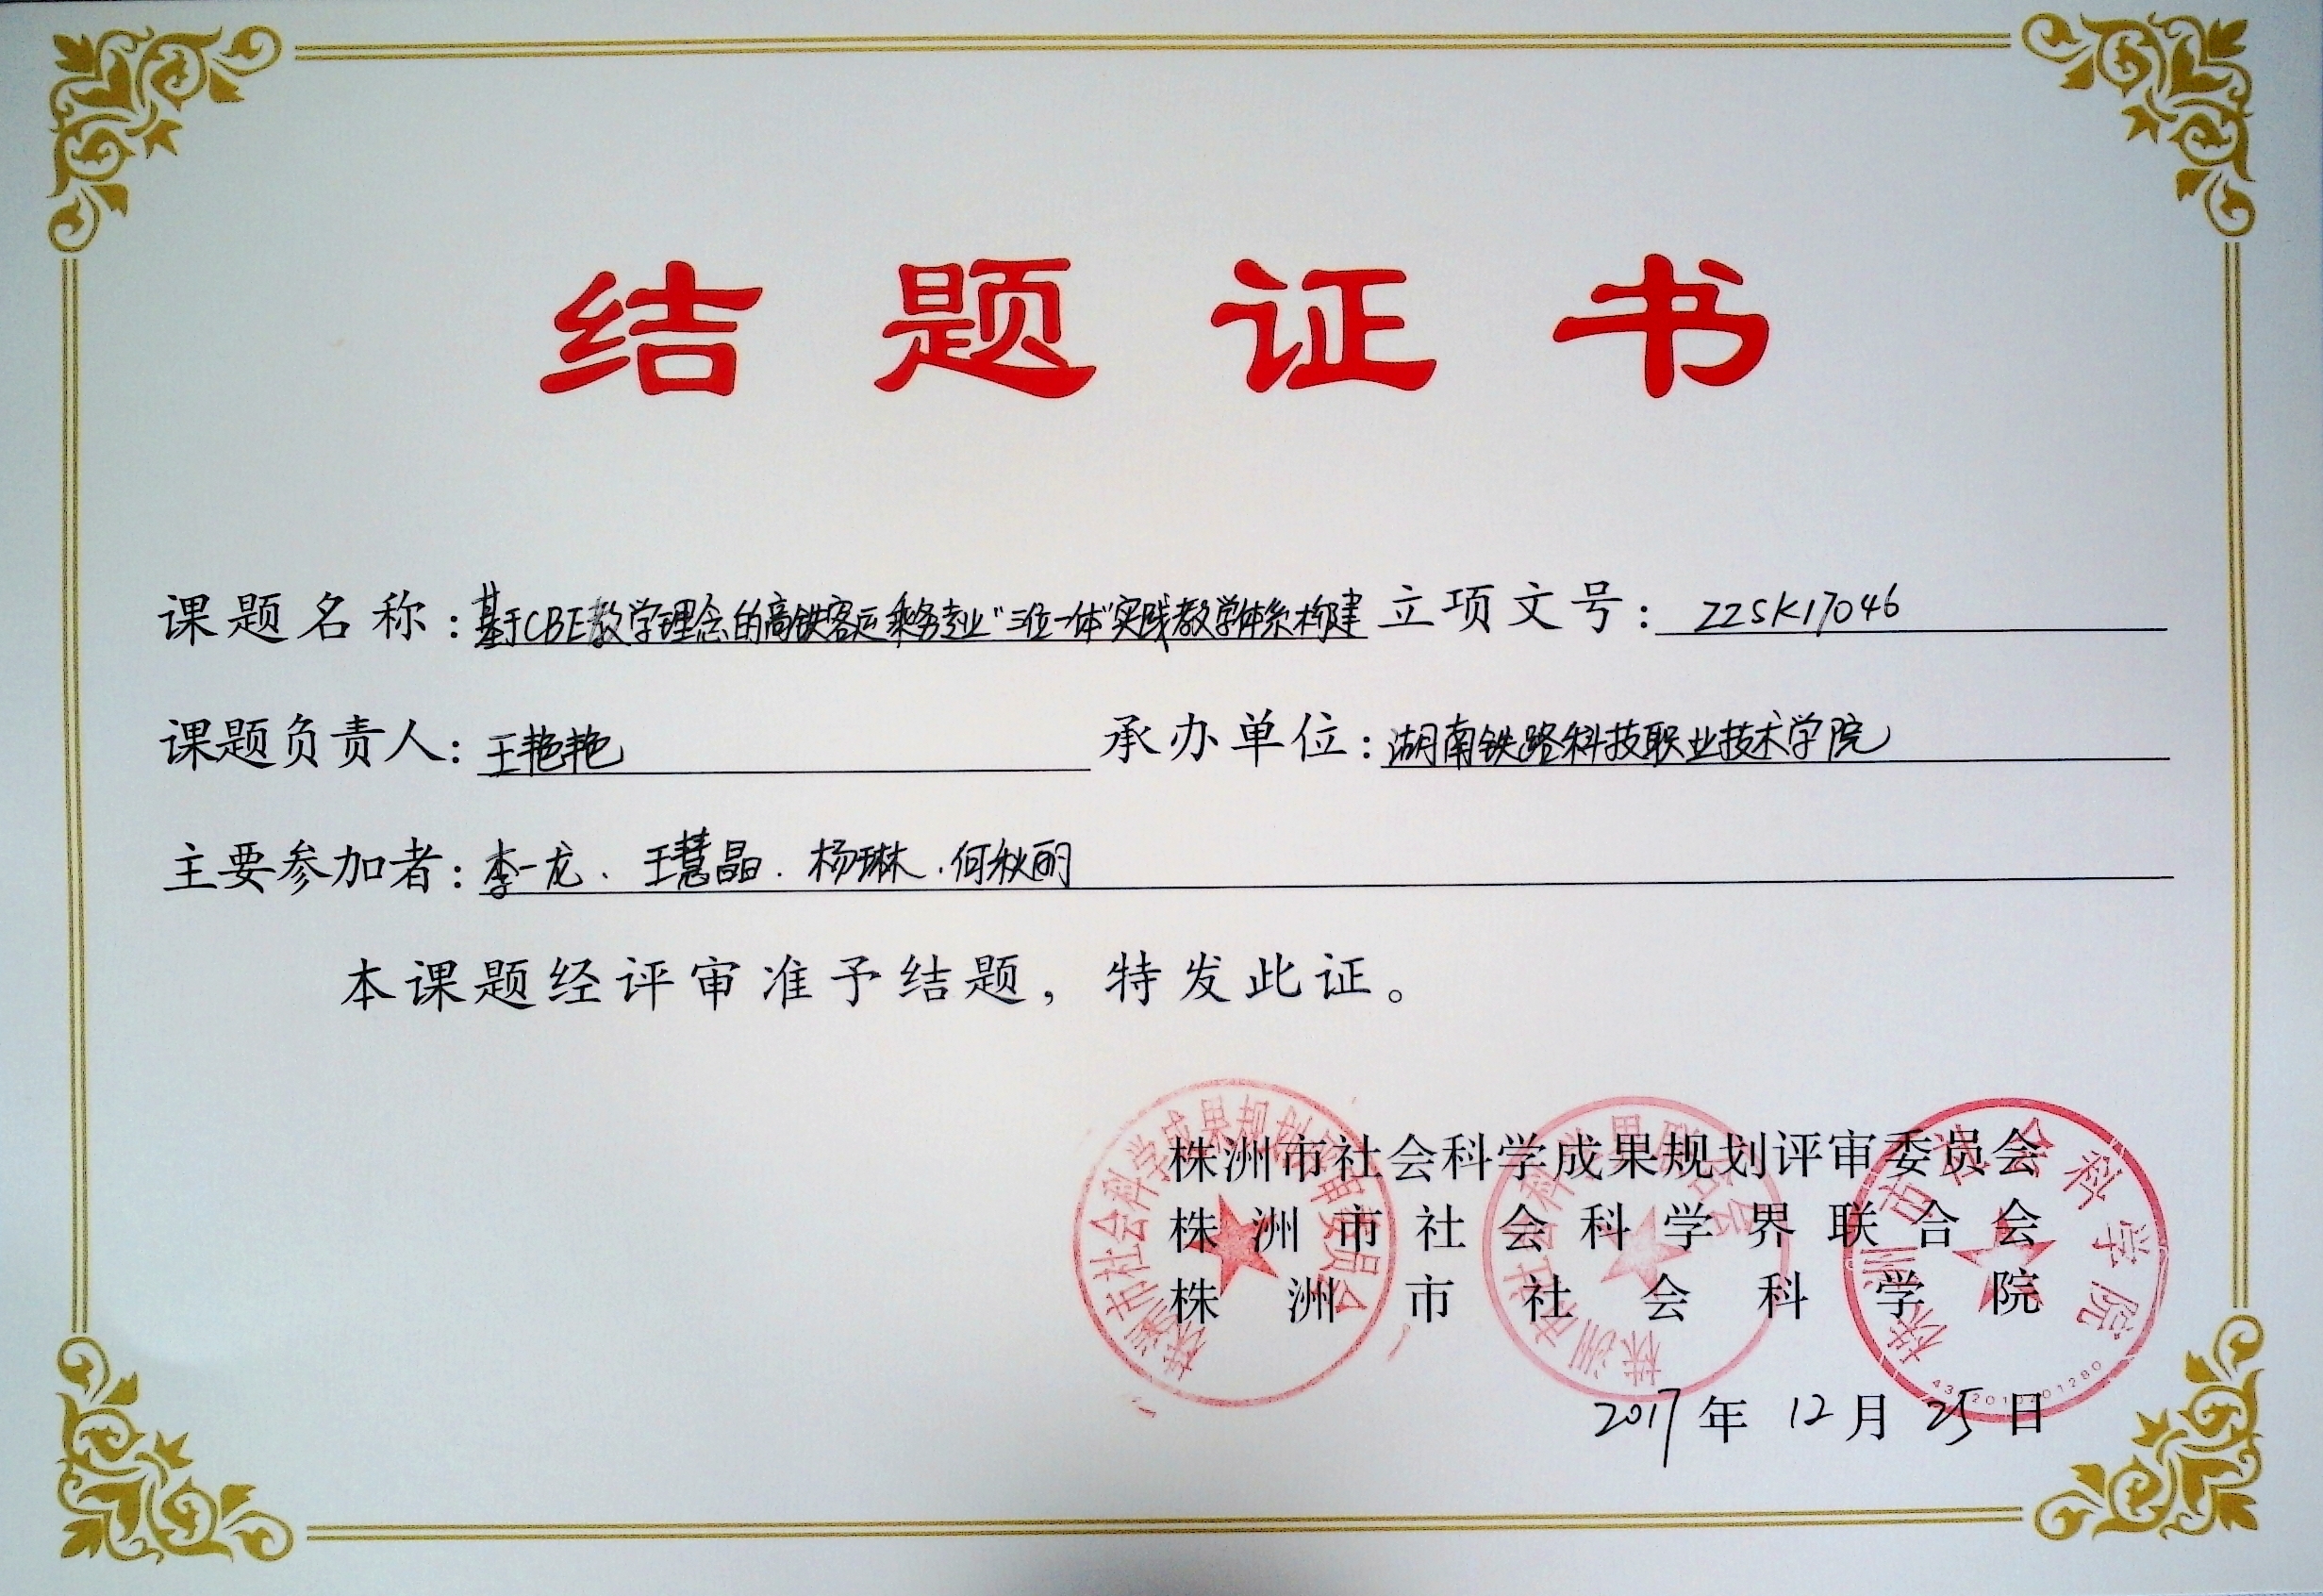 结题证书
课题名称：基于CBE教学理念的高铁客运乘务专业“三位一体”实践教学体系构建 立项文号：ZZSK17046
课题负责人：王艳艳 承办单位：湖南铁路科技职业技术学院
主要参加者：李一龙、王慧晶、杨琳、何秋丽
本课题经评审准予结题，特发此证。
株洲市社会科学成果规划评审委员会
株洲市社会科学界联合会
株洲市社会科学院
2017年12月25日
株洲市社会科学成果规划评审委员会
株洲市社会科学界联合会
株洲市社会科学院